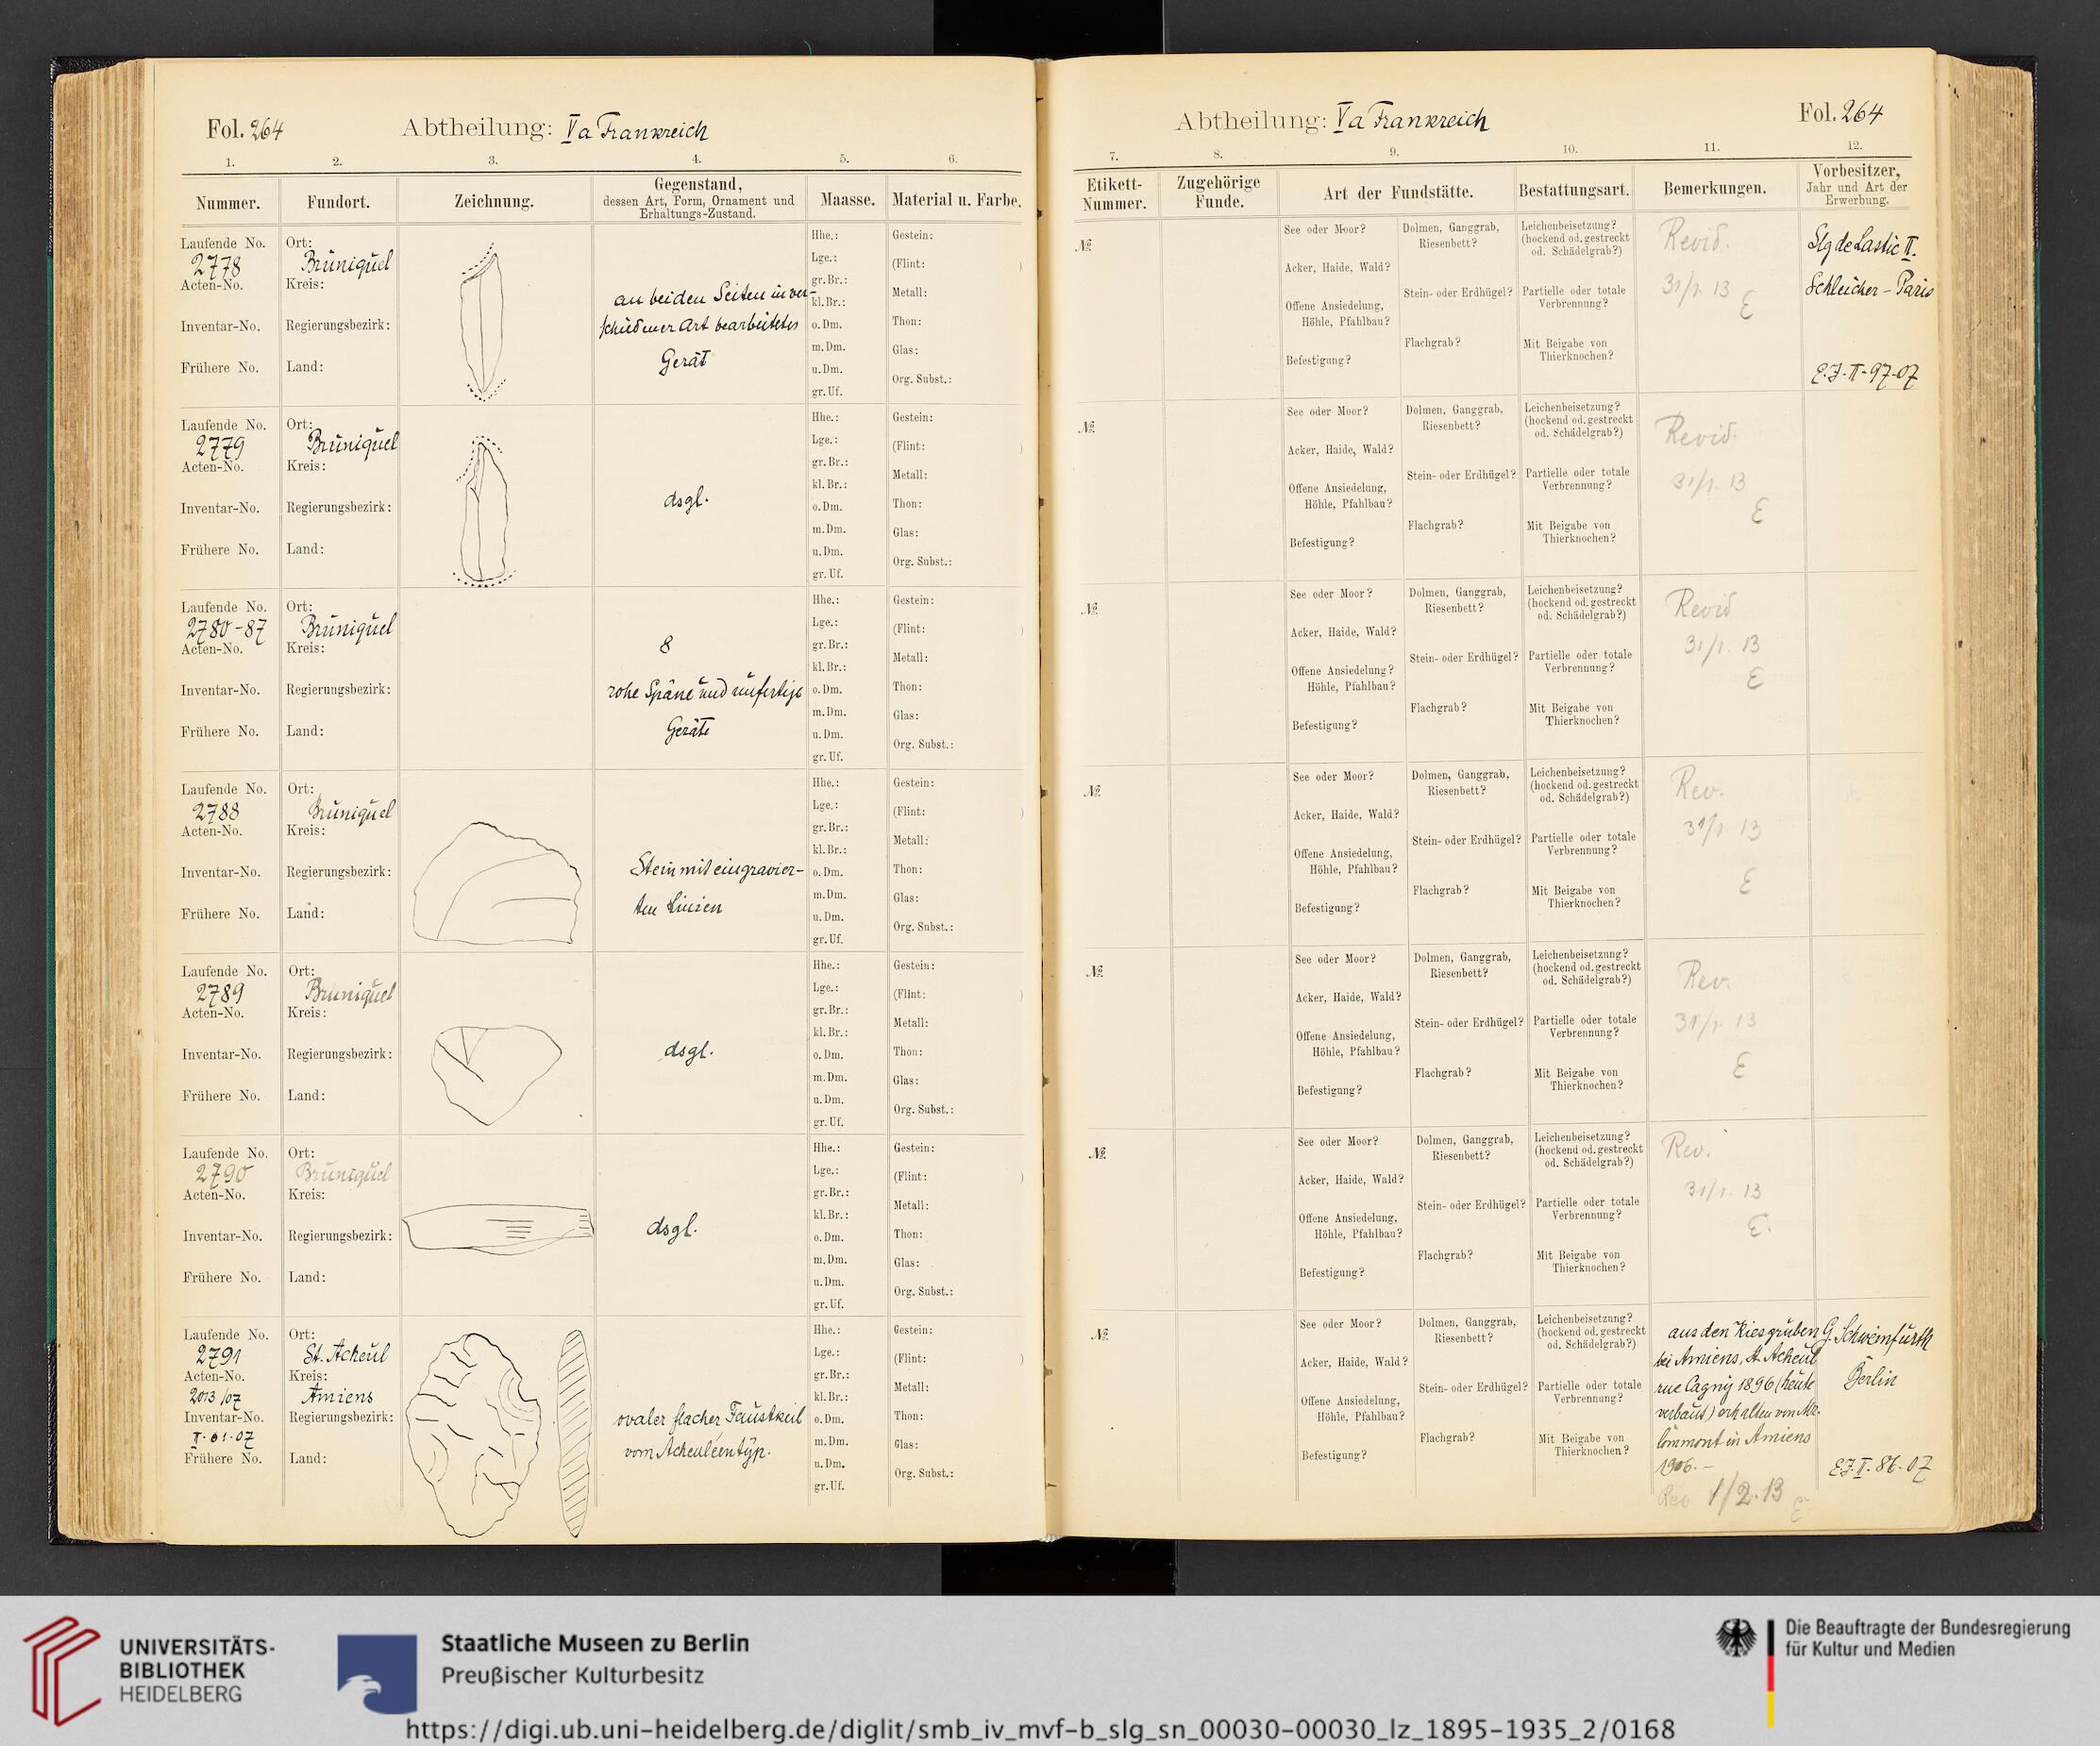 Fol. 264
Abtheilung: Va Frankreich
1. 2. 3. 4. 5. 6.
Nummer. Fundort. Zeichnung. Gegenstand, dessen Art, Form, Ornament und Erhaltungs-Zustand. Maasse. Material u. Farbe.
Laufende No. 2778
Acten-No.
Inventar-No.
Frühere No.
Ort: Bruniquel
Kreis:
Regierungsbezirk:
Land:
an beiden Seiten in ver-
schiedener Art bearbeitetes
Gerät
Hhe.:
Lge.:
gr. Br.:
kl. Br.:
o. Dm.
m. Dm.
u. Dm.
gr. Uf.
Gestein:
(Flint: )
Metall:
Thon:
Glas:
Org. Subst.:
Laufende No. 2779
Acten-No.
Inventar-No.
Frühere No.
Ort: Bruniquel
Kreis:
Regierungsbezirk:
Land:
dsgl.
Hhe.:
Lge.:
gr. Br.:
kl. Br.:
o. Dm.
m. Dm.
u. Dm.
gr. Uf.
Gestein:
(Flint: )
Metall:
Thon:
Glas:
Org. Subst.:
Laufende No. 2780-87
Acten-No.
Inventar-No.
Frühere No.
Ort: Bruniquel
Kreis:
Regierungsbezirk:
Land:
8
rohe Späne und unfertige
Geräte
Hhe.:
Lge.:
gr. Br.:
kl. Br.:
o. Dm.
m. Dm.
u. Dm.
gr. Uf.
Gestein:
(Flint: )
Metall:
Thon:
Glas:
Org. Subst.:
Laufende No. 2788
Acten-No.
Inventar-No.
Frühere No.
Ort: Bruniquel
Kreis:
Regierungsbezirk:
Land:
Stein mit eingravier-
ten Linien
Hhe.:
Lge.:
gr. Br.:
kl. Br.:
o. Dm.
m. Dm.
u. Dm.
gr. Uf.
Gestein:
(Flint: )
Metall:
Thon:
Glas:
Org. Subst.:
Laufende No. 2789
Acten-No.
Inventar-No.
Frühere No.
Ort: Bruniquel
Kreis:
Regierungsbezirk:
Land:
dsgl.
Hhe.:
Lge.:
gr. Br.:
kl. Br.:
o. Dm.
m. Dm.
u. Dm.
gr. Uf.
Gestein:
(Flint: )
Metall:
Thon:
Glas:
Org. Subst.:
Laufende No. 2790
Acten-No.
Inventar-No.
Frühere No.
Ort: Bruniquel
Kreis:
Regierungsbezirk:
Land:
dsgl.
Hhe.:
Lge.:
gr. Br.:
kl. Br.:
o. Dm.
m. Dm.
u. Dm.
gr. Uf.
Gestein:
(Flint: )
Metall:
Thon:
Glas:
Org. Subst.:
Laufende No. 2791
Acten-No. 2013/07
Inventar-No. II. 61. 07
Frühere No.
Ort: St. Acheul
Kreis: Amiens
Regierungsbezirk:
Land:
ovaler flacher Faustkeil
vom Acheuléentyp.
Hhe.:
Lge.:
gr. Br.:
kl. Br.:
o. Dm.
m. Dm.
u. Dm.
gr. Uf.
Gestein:
(Flint: )
Metall:
Thon:
Glas:
Org. Subst.:
Abtheilung: Va Frankreich
Fol. 264
7. 8. 9. 10. 11. 12.
Etikett-Nummer. Zugehörige Funde. Art der Fundstätte. Bestattungsart. Bemerkungen. Vorbesitzer, Jahr und Art der Erwerbung.
№
See oder Moor?
Acker, Haide, Wald?
Offene Ansiedelung,
Höhle, Pfahlbau?
Befestigung?
Dolmen, Ganggrab,
Riesenbett?
Stein- oder Erdhügel?
Flachgrab?
Leichenbeisetzung?
(hockend od. gestreckt
od. Schädelgrab?)
Partielle oder totale
Verbrennung?
Mit Beigabe von
Thierknochen?
Revid.
31/1. 13
E
Slg de Lastic II.
Schleicher - Paris
E. J. II - 97. 07
№
See oder Moor?
Acker, Haide, Wald?
Offene Ansiedelung,
Höhle, Pfahlbau?
Befestigung?
Dolmen, Ganggrab,
Riesenbett?
Stein- oder Erdhügel?
Flachgrab?
Leichenbeisetzung?
(hockend od. gestreckt
od. Schädelgrab?)
Partielle oder totale
Verbrennung?
Mit Beigabe von
Thierknochen?
Revid.
31/1. 13
E
№
See oder Moor?
Acker, Haide, Wald?
Offene Ansiedelung?
Höhle, Pfahlbau?
Befestigung?
Dolmen, Ganggrab,
Riesenbett?
Stein- oder Erdhügel?
Flachgrab?
Leichenbeisetzung?
(hockend od. gestreckt
od. Schädelgrab?)
Partielle oder totale
Verbrennung?
Mit Beigabe von
Thierknochen?
Revid
31/1. 13
E
№
See oder Moor?
Acker, Haide, Wald?
Offene Ansiedelung,
Höhle, Pfahlbau?
Befestigung?
Dolmen, Ganggrab,
Riesenbett?
Stein- oder Erdhügel?
Flachgrab?
Leichenbeisetzung?
(hockend od. gestreckt
od. Schädelgrab?)
Partielle oder totale
Verbrennung?
Mit Beigabe von
Thierknochen?
Rev.
31/1. 13
E
№
See oder Moor?
Acker, Haide, Wald?
Offene Ansiedelung,
Höhle, Pfahlbau?
Befestigung?
Dolmen, Ganggrab,
Riesenbett?
Stein- oder Erdhügel?
Flachgrab?
Leichenbeisetzung?
(hockend od. gestreckt
od. Schädelgrab?)
Partielle oder totale
Verbrennung?
Mit Beigabe von
Thierknochen?
Rev.
31/1. 13
E
№
See oder Moor?
Acker, Haide, Wald?
Offene Ansiedelung,
Höhle, Pfahlbau?
Befestigung?
Dolmen, Ganggrab,
Riesenbett?
Stein- oder Erdhügel?
Flachgrab?
Leichenbeisetzung?
(hockend od. gestreckt
od. Schädelgrab?)
Partielle oder totale
Verbrennung?
Mit Beigabe von
Thierknochen?
Rev.
31/1. 13
E.
№
See oder Moor?
Acker, Haide, Wald?
Offene Ansiedelung,
Höhle, Pfahlbau?
Befestigung?
Dolmen, Ganggrab,
Riesenbett?
Stein- oder Erdhügel?
Flachgrab?
Leichenbeisetzung?
(hockend od. gestreckt
od. Schädelgrab?)
Partielle oder totale
Verbrennung?
Mit Beigabe von
Thierknochen?
aus den Kiesgruben
bei Amiens, St. Acheul
rue Cagny 1896 (heute
verbaut) erhalten von Mr.
Commont in Amiens
1906. -
Rev 1/2. 13 E
G. Schweinfurth
Berlin
E. J. II. 86. 07
UNIVERSITÄTS-
BIBLIOTHEK
HEIDELBERG
Staatliche Museen zu Berlin
Preußischer Kulturbesitz
Die Beauftragte der Bundesregierung
für Kultur und Medien
https://digi.ub.uni-heidelberg.de/diglit/smb_iv_mvf-b_slg_sn_00030-00030_lz_1895-1935_2/0168